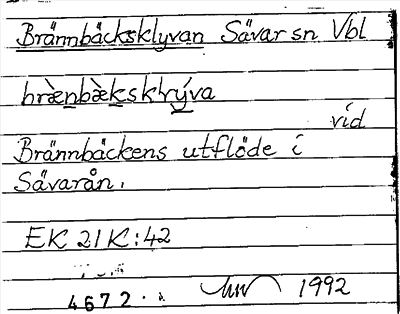 Brännbäcksklyvan Sävar sn Vbl
bræ̀nbæ̀ksklrýva
vid
Brännbäckens utflöde i
Sävarån.
EK 21K:42
4672
1992